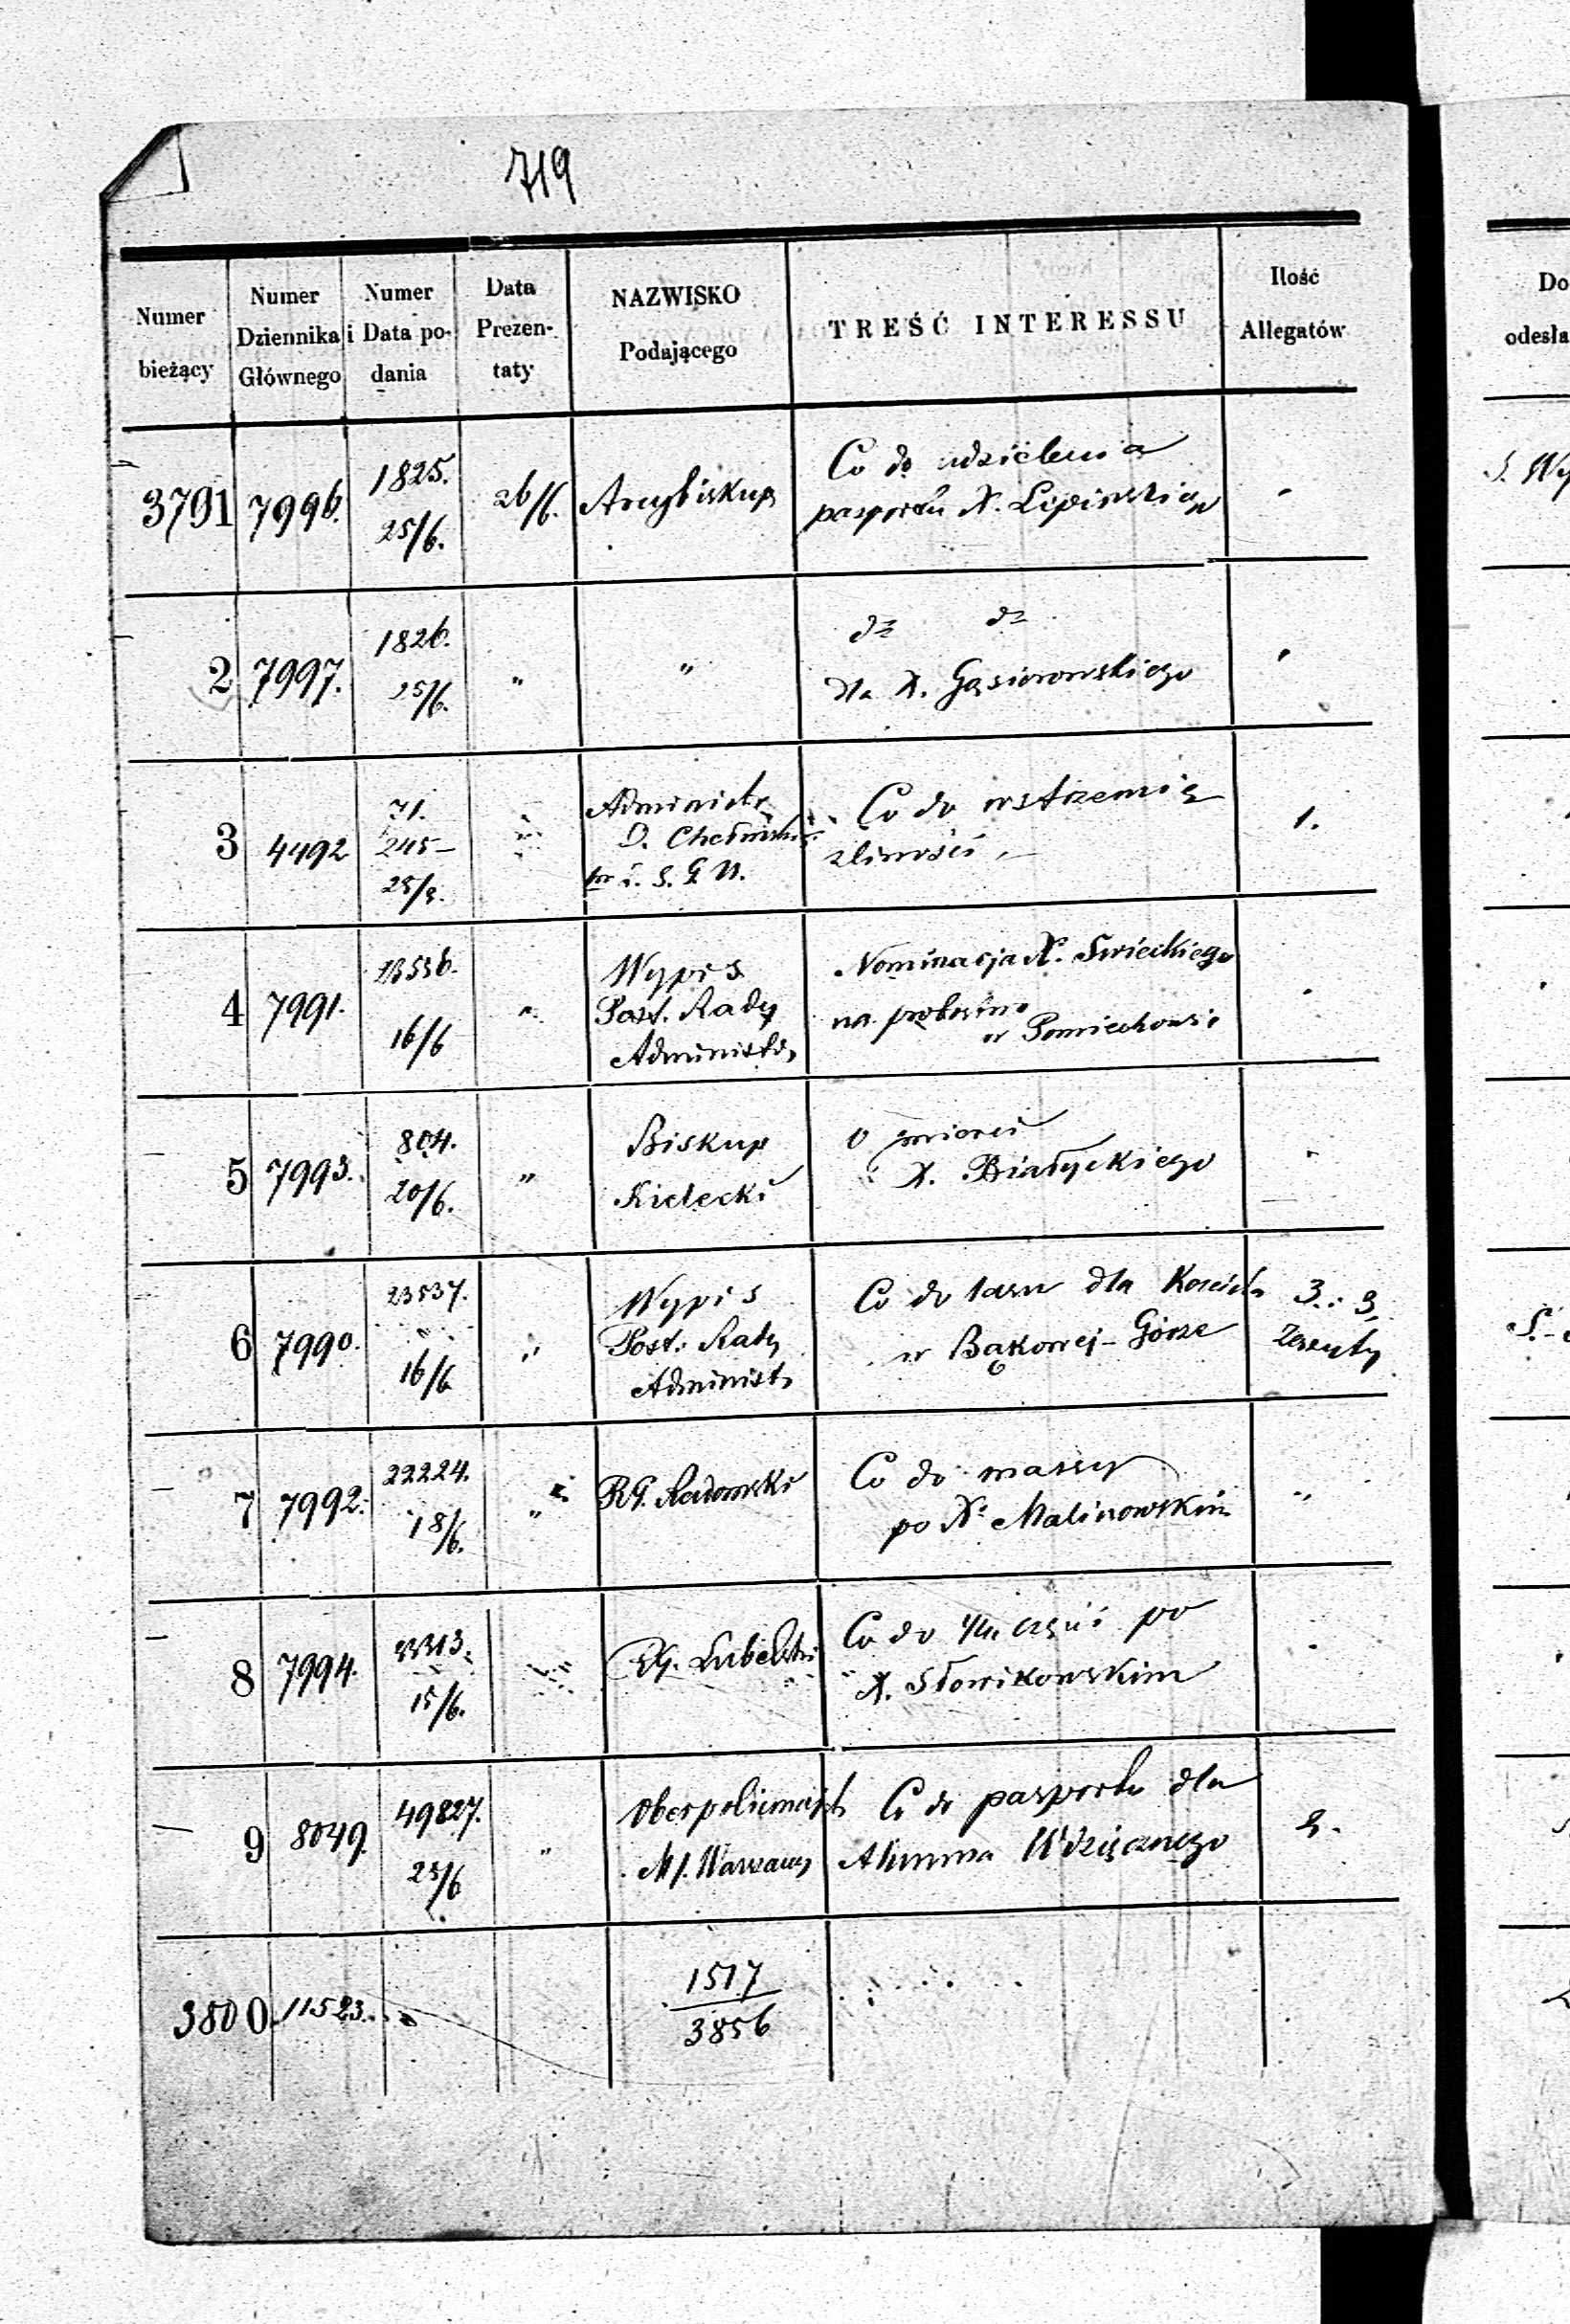 719
Numer bieżący
Numer Dziennika Głównego
Numer i Data podania
Data Prezentaty
NAZWISKO Podającego
TREŚĆ INTERESSU
Ilość Allegatów
3791 7996. 1825. 25/6. 26/6. Arcybiskup
Co do udzielenia
paszportu X. Lipińskiego
2 7997. 1826. 25/6. " "
do do
dla X. Gąsiorowskiego
3 4492 71. 245 – 25/3.
Administr.
D. Chełmski
Co do wstrzemię
źliwości
1.
4 7991. 23536. 16/6 "
Wypis
Post. Rady
Administr.
Nominacja X. Swieckiego
na probostwo
w Pomiechowie
5 7993. 804. 20/6. "
Biskup
Kielecki
O śmierci
X. Białyckiego
6 7990. 23537. 16/6 "
Wypis
Post. Rady
Administ.
Co do lasu dla Kościoła
w Bąkowej-Górze
3. 3
Zeszyty
7 7992. 22224. 18/6. "
RG. Radomski
Co do massy
po X. Malinowskim
8 7994. 15/6.
RG. Lubelski
Co do po
X. Słowikowskim
9 8049. 49827. 25/6 "
Oberpolicmajst.
M. Warszawy
Co do paszportu dla
Alumna Wdzięcznego
3800. 11523.
1517
3856
Do
odesła